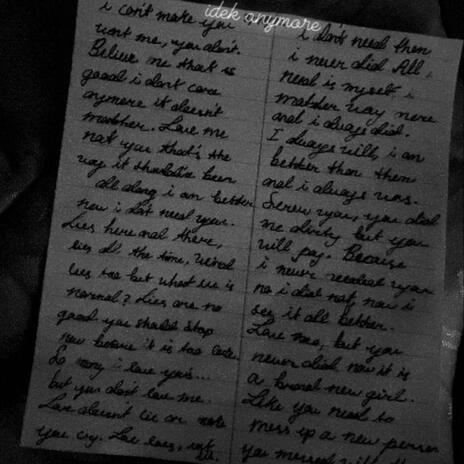 idek anymore
i can't make you
want me, you don't.
Believe me that is
goood i dont care
anymore it doesn't
matther. Love me
not you that's the
way it been
all along i am better
now i dot need you.
Lies here and there,
lies all the time,
lies too but what lie is
normal? Lies are no
good you should stop
now before it is too late.
So many i love you's...
but you don't love me.
Love doesnt lie or make
you cry. Love
i don't need them
i never did. All
need is myself. i
matther way more
and i always did.
I always will, i am
better than them
and i always was.
Screw you, you did
me dirty but you
will pay. Because
i never you
no i did not, now i
see it all better.
Love me, but you
never did. now it is
a brand new girl.
Like you need to
mess up a new person
you messed